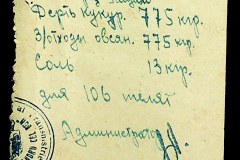 Дерть Кукур. 775 кгр.
З/отходи овсян. 775 кгр.
Соль 13 кгр.
для 106 телят
Администратор